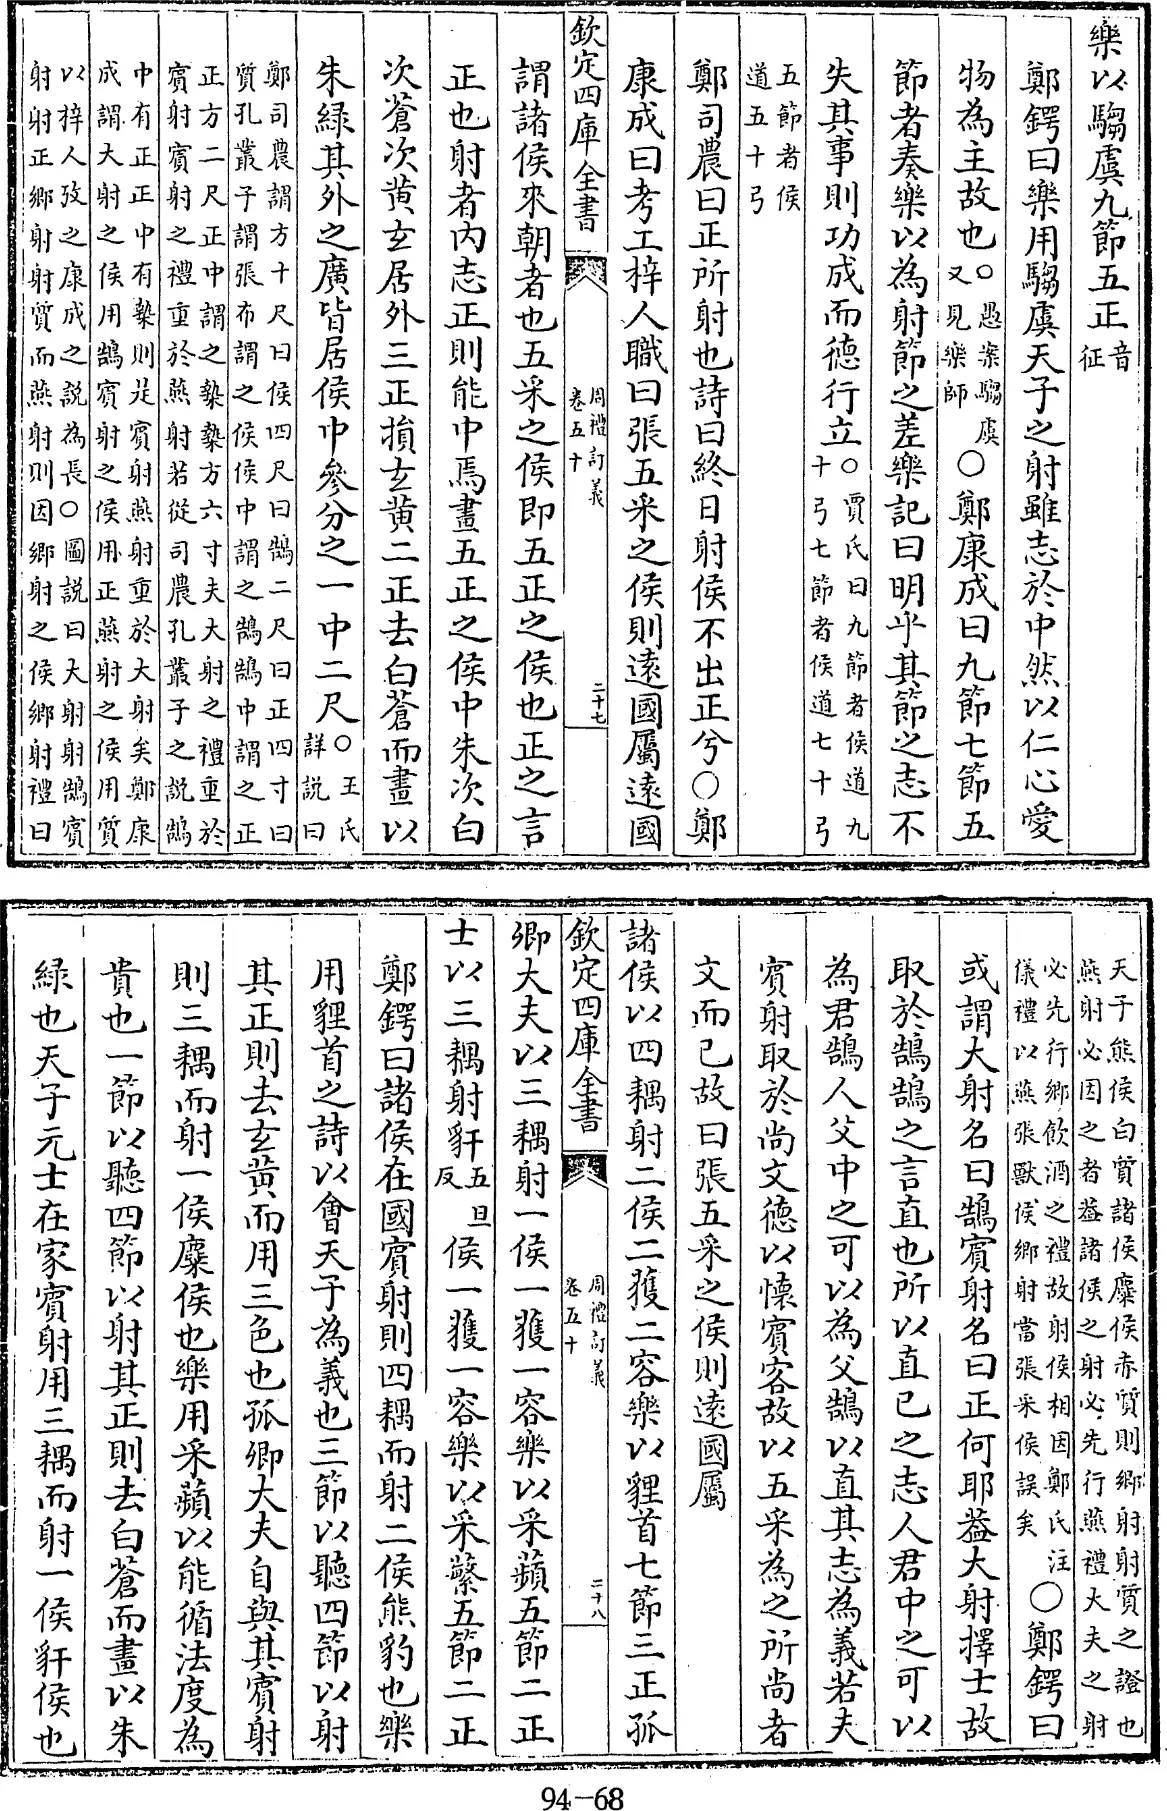 樂以騶虞九節五正音征
鄭鍔曰樂用騶虞天子之射雖志於中然以仁心愛
物為主故也○愚案騶虞又見樂師○鄭康成曰九節七節五
節者奏樂以為射節之差樂記曰明乎其節之志不
失其事則功成而徳行立○賈氏曰九節者侯道九十弓七節者侯道七十弓
五節者侯道五十弓
鄭司農曰正所射也詩曰終日射侯不出正兮○鄭
康成曰考工梓人職曰張五采之侯則逺國屬逺國
欽定四庫全書 周禮訂義 卷五十 二十七
謂諸侯來朝者也五采之侯即五正之侯也正之言
正也射者内志正則能中焉畫五正之侯中朱次白
次蒼次黄𤣥居外三正損𤣥黄二正去白蒼而畫以
朱緑其外之廣皆居侯中參分之一中二尺○王氏詳説曰
鄭司農謂方十尺曰侯四尺曰鵠二尺曰正四寸曰
質孔叢子謂張布謂之侯侯中謂之鵠鵠中謂之正
正方二尺正中謂之槷槷方六寸夫大射之禮重於
賓射賓射之禮重於燕射若從司農孔叢子之説鵠
中有正正中有槷則是賓射燕射重於大射矣鄭康
成謂大射之侯用鵠賓射之侯用正燕射之侯用質
以梓人攷之康成之説為長○圖説曰大射射鵠賓
射射正鄉射射質而燕射則因鄉射之侯鄉射禮曰
天子熊侯白質諸侯麋侯赤質則鄉射射質之證也
燕射必因之者葢諸侯之射必先行燕禮大夫之射
必先行鄉飲酒之禮故射侯相因鄭氏注
儀禮以燕張獸侯鄉射當張采侯誤矣○鄭鍔曰
或謂大射名曰鵠賓射名曰正何耶葢大射擇士故
取於鵠鵠之言直也所以直己之志人君中之可以
為君鵠人父中之可以為父鵠以直其志為義若夫
賓射取於尚文徳以懷賓客故以五采為之所尚者
文而已故曰張五采之侯則逺國屬
諸侯以四耦射二侯二獲二容樂以貍首七節三正孤
欽定四庫全書 周禮訂義 卷五十 二十八
卿大夫以三耦射一侯一獲一容樂以采蘋五節二正
士以三耦射豻五旦反侯一獲一容樂以采蘩五節二正
鄭鍔曰諸侯在國賓射則四耦而射二侯熊豹也樂
用貍首之詩以㑹天子為義也三節以聽四節以射
其正則去𤣥黄而用三色也孤卿大夫自與其賓射
則三耦而射一侯麋侯也樂用采蘋以能循法度為
貴也一節以聽四節以射其正則去白蒼而畫以朱
緑也天子元士在家賓射用三耦而射一侯豻侯也
94-68